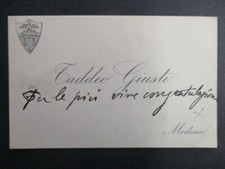 Taddeo Giusti
Per le più vive congratulazioni
Modena